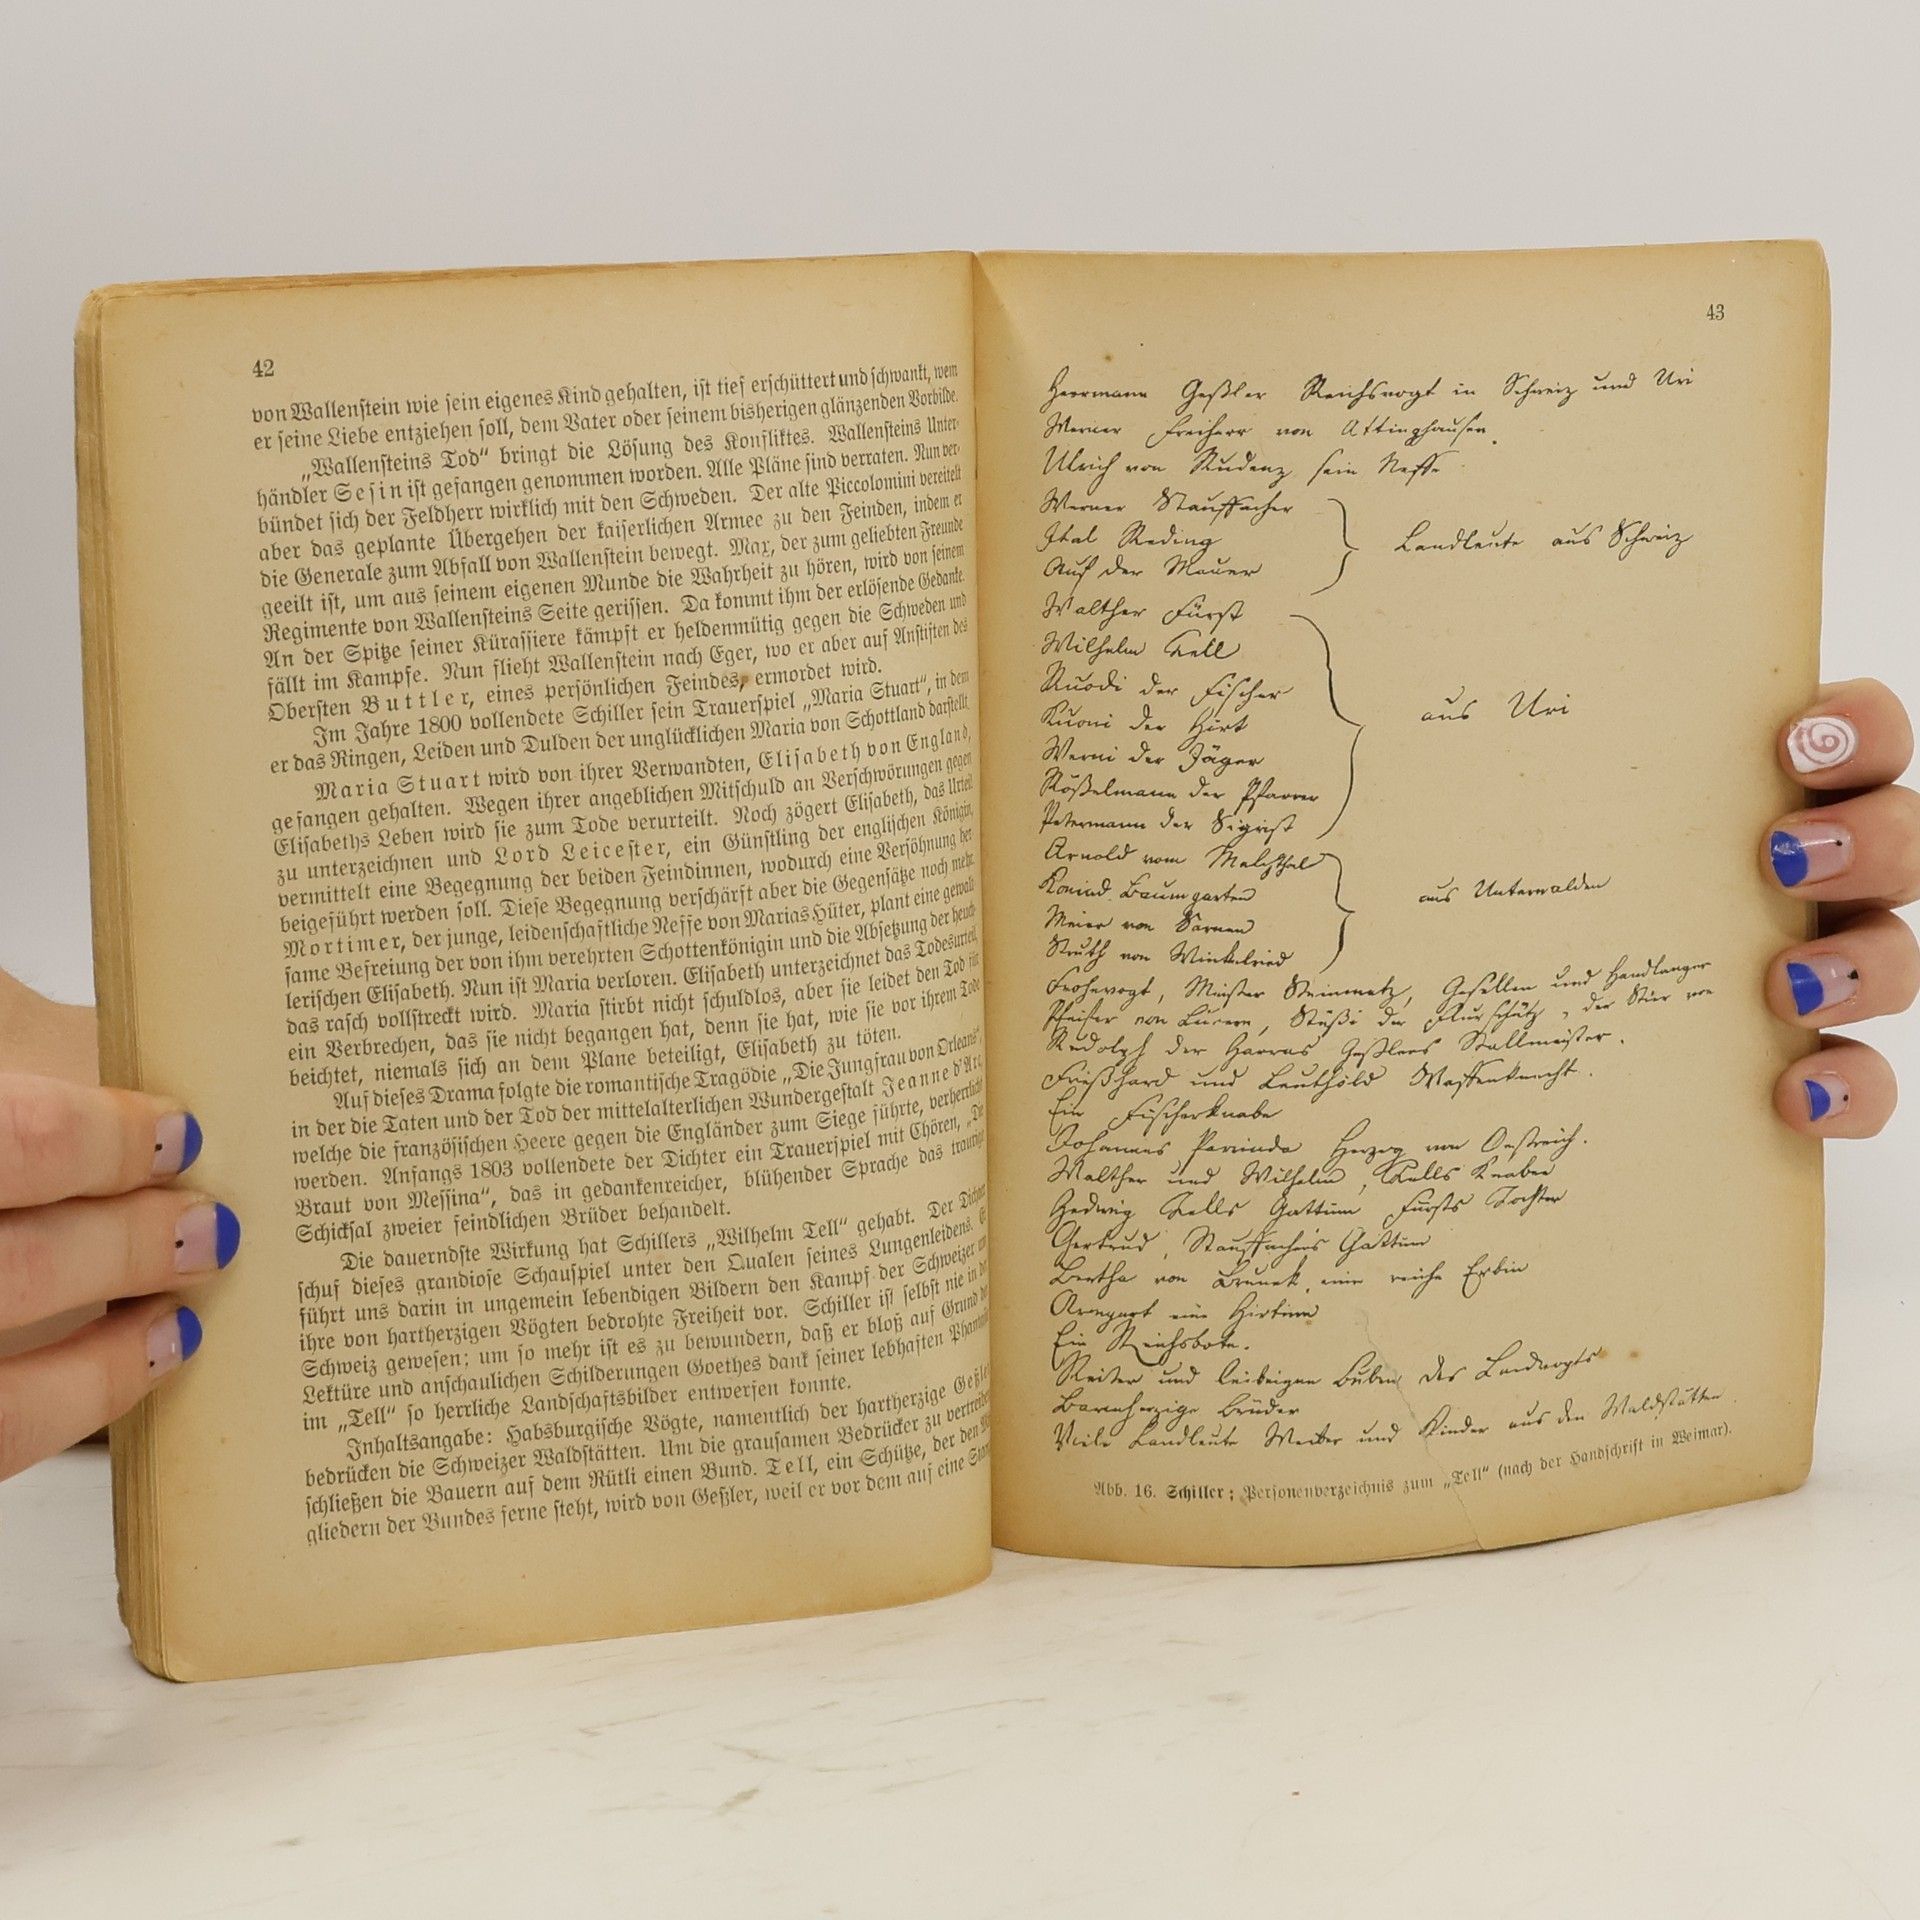 42
von Wallenstein wie sein eigenes Kind gehalten, ist tief erschüttert und schwankt, wem
er seine Liebe entziehen soll, dem Vater oder seinem bisherigen glänzenden Vorbilde.
„Wallensteins Tod“ bringt die Lösung des Konfliktes. Wallensteins Unter-
händler Sesin ist gefangen genommen worden. Alle Pläne sind verraten. Nun ver-
bündet sich der Feldherr wirklich mit den Schweden. Der alte Piccolomini vereitelt
aber das geplante Übergehen der kaiserlichen Armee zu den Feinden, indem er
die Generale zum Abfall von Wallenstein bewegt. Max, der zum geliebten Freunde
geeilt ist, um aus seinem eigenen Munde die Wahrheit zu hören, wird von seinem
Regimente von Wallensteins Seite gerissen. Da kommt ihm der erlösende Gedanke.
An der Spitze seiner Kürassiere kämpft er heldenmütig gegen die Schweden und
fällt im Kampfe. Nun flieht Wallenstein nach Eger, wo er aber auf Anstiften des
Obersten Buttler, eines persönlichen Feindes, ermordet wird.
Im Jahre 1800 vollendete Schiller sein Trauerspiel „Maria Stuart“, in dem
er das Ringen, Leiden und Dulden der unglücklichen Maria von Schottland darstellt.
Maria Stuart wird von ihrer Verwandten, Elisabeth von England,
gefangen gehalten. Wegen ihrer angeblichen Mitschuld an Verschwörungen gegen
Elisabeths Leben wird sie zum Tode verurteilt. Noch zögert Elisabeth, das Urteil
zu unterzeichnen und Lord Leicester, ein Günstling der englischen Königin,
vermittelt eine Begegnung der beiden Feindinnen, wodurch eine Versöhnung her-
beigeführt werden soll. Diese Begegnung verschärft aber die Gegensätze noch mehr.
Mortimer, der junge, leidenschaftliche Neffe von Marias Hüter, plant eine gewalt-
same Befreiung der von ihm verehrten Schottenkönigin und die Absetzung der heuch-
lerischen Elisabeth. Nun ist Maria verloren. Elisabeth unterzeichnet das Todesurteil,
das rasch vollstreckt wird. Maria stirbt nicht schuldlos, aber sie leidet den Tod für
ein Verbrechen, das sie nicht begangen hat, denn sie hat, wie sie vor ihrem Tode
beichtet, niemals sich an dem Plane beteiligt, Elisabeth zu töten.
Auf dieses Drama folgte die romantische Tragödie „Die Jungfrau von Orleans“,
in der die Taten und der Tod der mittelalterlichen Wundergestalt Jeanne d'Arc,
welche die französischen Heere gegen die Engländer zum Siege führte, verherrlicht
werden. Anfangs 1803 vollendete der Dichter ein Trauerspiel mit Chören, „Die
Braut von Messina“, das in gedankenreicher, blühender Sprache das traurige
Schicksal zweier feindlichen Brüder behandelt.
Die dauerndste Wirkung hat Schillers „Wilhelm Tell“ gehabt. Der Dichter
schuf dieses grandiose Schauspiel unter den Qualen seines Lungenleidens. Er
führt uns darin in ungemein lebendigen Bildern den Kampf der Schweizer um
ihre von hartherzigen Vögten bedrohte Freiheit vor. Schiller ist selbst nie in der
Schweiz gewesen; um so mehr ist es zu bewundern, daß er bloß auf Grund der
Lektüre und anschaulichen Schilderungen Goethes dank seiner lebhaften Phantasie
im „Tell“ so herrliche Landschaftsbilder entwerfen konnte.
Inhaltsangabe: Habsburgische Vögte, namentlich der hartherzige Geßler
bedrücken die Schweizer Waldstätten. Um die grausamen Bedrücker zu vertreiben
schließen die Bauern auf dem Rütli einen Bund. Tell, ein Schütze, der den
gliedern der Bundes ferne steht, wird von Geßler, weil er vor dem auf eine
43
Herrmann Geßler Reichsvogt in Schweiz und Uri
Werner Freiherr von Attinghausen
Ulrich von Rudenz sein Neffe
Werner Stauffacher
Ital Reding
Auf der Mauer
Landleute aus Schweiz
Walther Fürst
Wilhelm Tell
Ruodi der Fischer
Kuoni der Hirt
Werni der Jäger
Rößelmann der Pfarrer
Petermann der Sigrist
aus Uri
Arnold vom Melchthal
Konrad Baumgarten
Meier von Sarnen
Struth von Winkelried
aus Unterwalden
Frohnvogt, Meister Steinmetz, Gesellen und Handlanger
Pfeifer von Lucern, Stüßi der Flurschütz, der Stier von
Rudolph der Harras Geßlers Stallmeister.
Frießhard und Leuthold Waffenknecht.
Ein Fischerknabe
Johannes Parricida Herzog von Oestreich.
Walther und Wilhelm, Tells Knaben
Hedwig Tells Gattinn Fürsts Tochter
Gertrud, Stauffachers Gattinn
Bertha von Bruneck, eine reiche Erbin
Armgart eine Hirtinn
Ein Reichsbote.
Reiter und leibeigne Buben des Landvogts
Barmherzige Brüder
Viele Landleute Weiber und Kinder aus den Waldstätten
Abb. 16. Schiller; Personenverzeichnis zum „Tell“ (nach der Handschrift in Weimar).